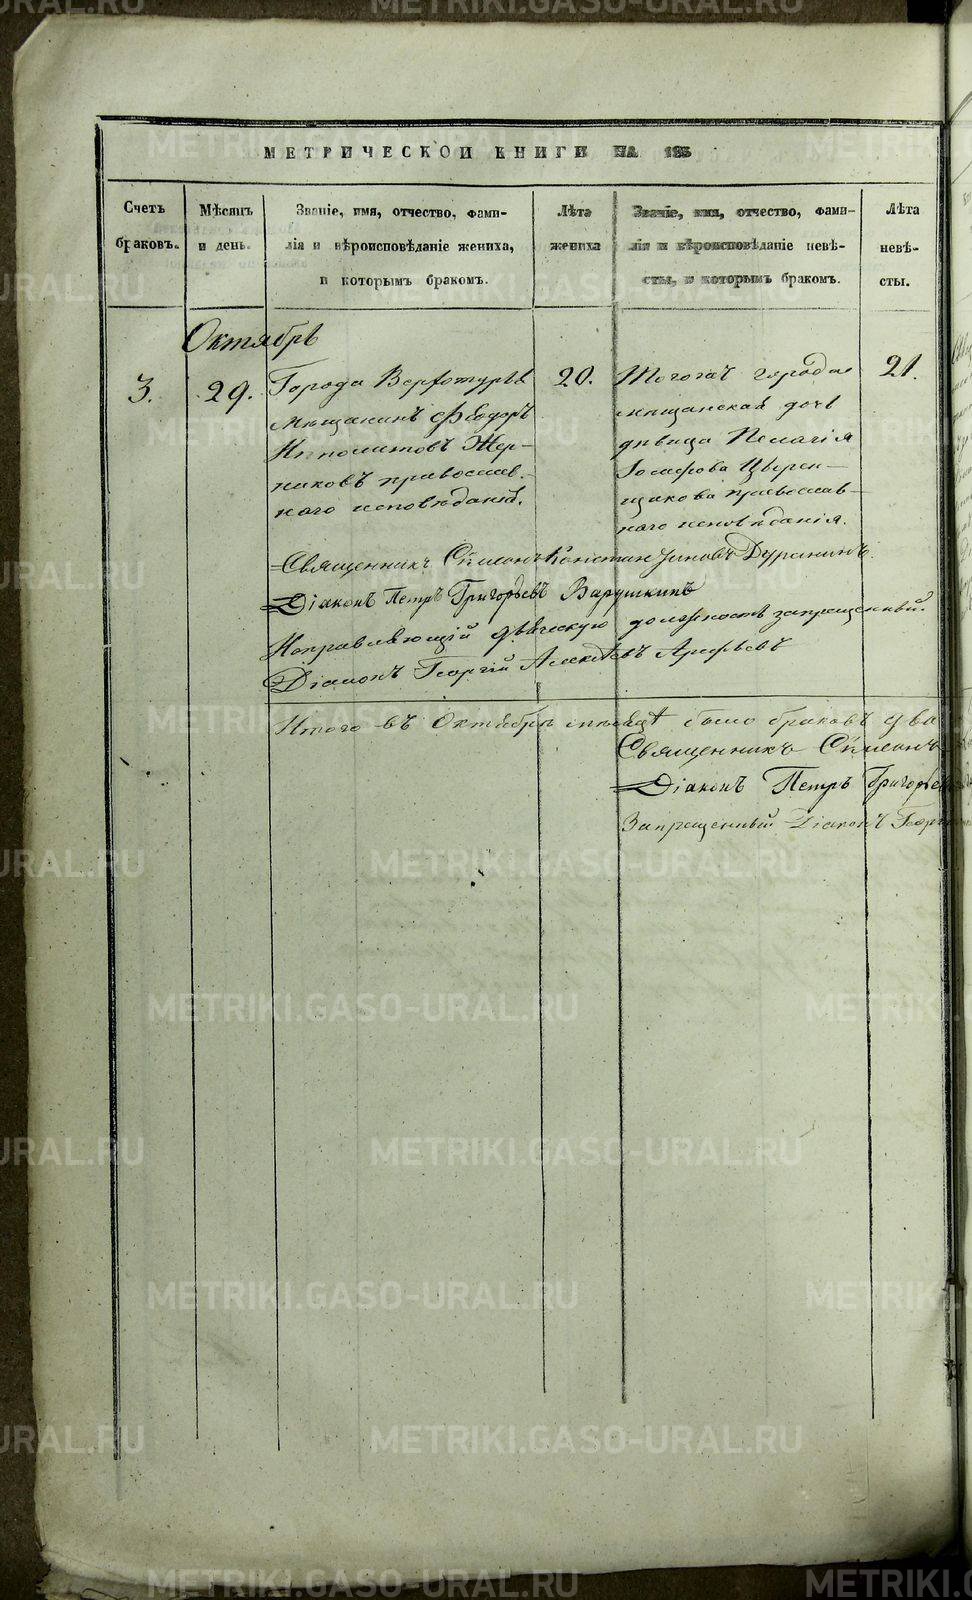 МЕТРИЧЕСКОЙ КНИГИ НА 185
Счетъ браковъ.
Мѣсяцъ и день.
Званіе, имя, отчество, фами-
лія и вѣроисповѣданіе жениха,
и которымъ бракомъ.
Лѣта жениха
Званіе, имя, отчество, фами-
лія и вѣроисповѣданіе невѣ-
сты, и которымъ бракомъ.
Лѣта невѣ-
сты.
Октябрь
3.
29.
Города Верхотурья
мѣщанинъ Феодоръ
Ипполитовъ Жер-
никовъ православ-
наго исповѣданія.
20.
Тогожъ города
мѣщанская дочь
дѣвица Пелагія
Іосифова Цверен-
щикова православ-
наго исповѣданія.
21.
Священникъ Сѵмеонъ Константиновъ Дуранинъ.
Діаконъ Петръ Григорьевъ Варушкинъ
Исправляющій дьяческую должность запрещенный
Діаконъ Георгій Алексѣевъ Арефьевъ
Итого въ Октябрѣ мѣсяцѣ было браковъ два
Священникъ Сѵмеонъ
Діаконъ Петръ Григорьев
Запрещенный Діаконъ Георг
METRIKI.GASO-URAL.RU